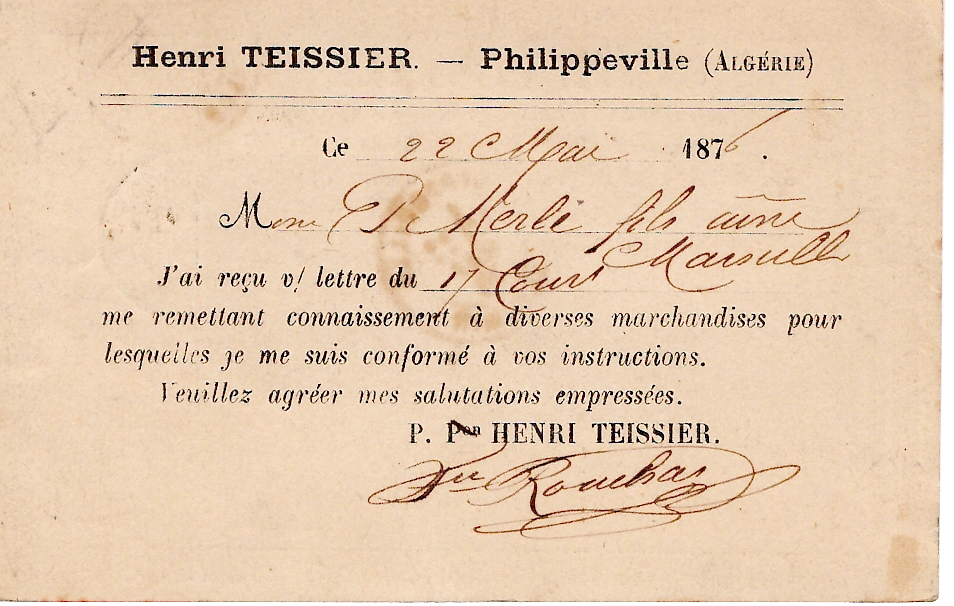 Henri TEISSIER. — Philippeville (ALGÉRIE)
Ce 22 Mai 1876.
Mons P. Merle fils aîné
Marseille
J'ai reçu v/ lettre du 17 Court
me remettant connaissement à diverses marchandises pour
lesquelles je me suis conformé à vos instructions.
Veuillez agréer mes salutations empressées.
P. Pon HENRI TEISSIER.